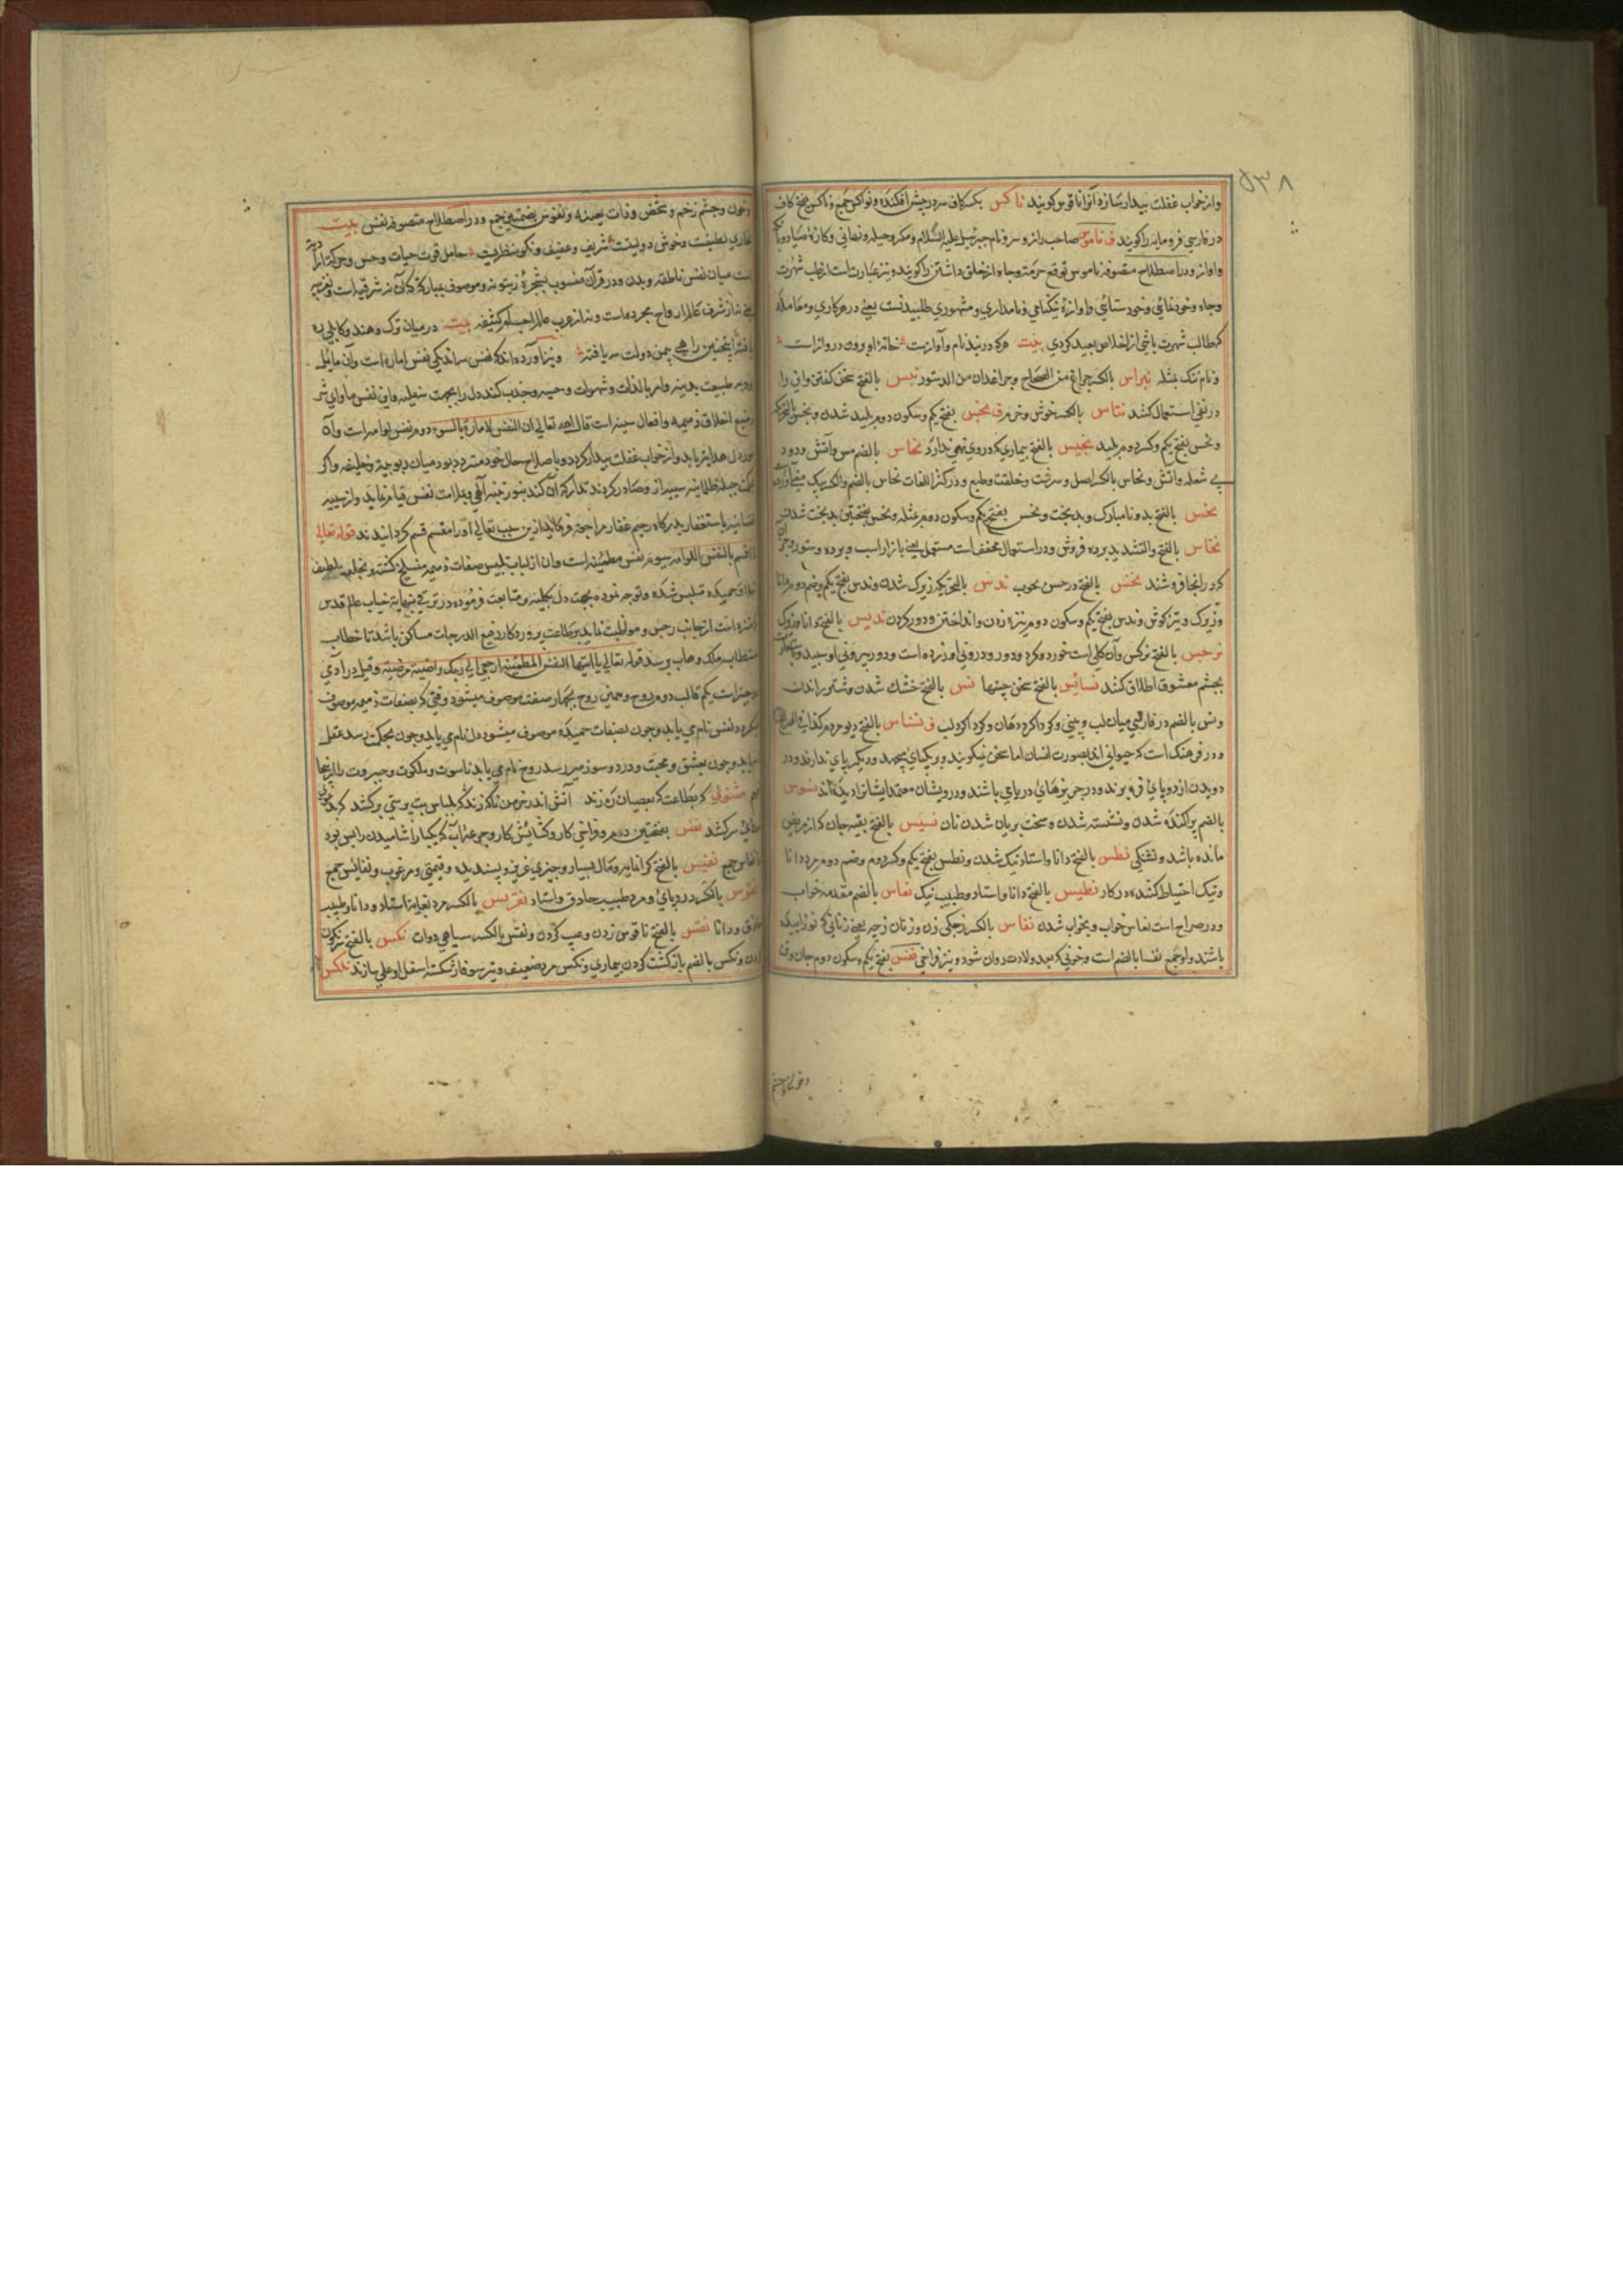 ۵۳۸
واز خواب غفلت بیدار سازد آنرا ناقوس کویند ناکس بکسر کاف سر در پیش افکنده و نواکس جمع و ناکس بفتح کاف
در فارسی فرومایه را کویند ف ناموس صاحب راز و سر و نام جبرئیل علیه السلام و مکر و حیله و نهانی و کازۀ صیاد و بانک
و اوازه و در اصطلاح متصوفه ناموس توقع حرمت و جاه از خلق داشتن را کویند و نیز عبارت است از طلب شهرت
و جاه و خودنمائی و خودستائی و اوازۀ نیکنامی و نامداری و مشهوری طلبیدنست یعنی در هر کاری و معامله
که طالب شهرت باشی از اخلاص بعید کردی بیت هرکه در بند نام و آوازیست خانۀ او برون دروازاست
نبراس بالکسر چراغ من الصحاح و چراغدان من الدستور نبس بالفتح سخن کفتن و این را
در نفی استعمال کنند نتاس بالکسر خوش و خرم ف نجس بفتح یکم و سکون دوم پلید شدن و نجس بالفتح
و نجس بفتح یکم و کسر دوم پلید نجیس بالفتح بیماری که روی بهی ندارد نحاس بالضم مس و آتش و دود
بی شعله و آتش و نحاس بالکسر اصل و سرشت و خلقت و طبع و در کنز اللغات نحاس بالضم والکسر بیک معنی آورده
نحس بالفتح بد و نامبارک و بدبخت و نحس بفتح یکم و سکون دوم مثله و نحس بفتحتین بدبخت شدن
نخاس بالفتح والتشدید برده فروش و در استعمال مخفف است مستعمل یعنی بازار اسب و برده و ستور
که در انجا فروشند نخس بالفتح در حسن بچوب ندس بالتحریک زیرک شدن و ندس بفتح یکم و ضم دوم دانا
و زیرک و تیزکوش و ندس بفتح یکم و سکون دوم نیزه زدن و انداختن و دور کردن ندیس بالفتح دانا و زیرک
نرجس بالفتح نرکس و آن کلی است خورد و مکرد و دور و درونی او زرده است و دور بیرونی او سپید
بچشم معشوق اطلاق کنند نسائس بالفتح سخن چینها نس بالفتح خشک شدن و شتر راندن
و نس بالضم در فارسی میان لب و بینی و کرداکرد دهان و کرداکرد لب ف نسناس بالفتح دیو مردم
و در فرهنک است که حیوانی اند بصورت انسان اما سخن نمیکویند و بر یکپای میجهد و دیکر پای ندارند و در
دویدن از دو پای فره برند و در جزیرهای دریای باشند و درویشان معتمد ایشانرا دیده اند نسوس
بالضم پراکنده شدن و نشسته شدن و سخت بریان شدن نان نسیس بالفتح بقیه جان که از مریض
مانده باشد و تشنکی نطس بالفتح دانا و استاد نیک شدن و نطس بفتح یکم و کسر دوم و ضم دوم مرد دانا
و نیک احتیاط کننده در کار نطیس بالفتح دانا و استاد و طبیب نیک نعاس بالضم مقدمه خواب
و در صراح است نعاس خواب و بخواب شدن نفاس بالکسر زجکی زن و زنان زچه یعنی زنانی که نو زاییده
باشند و او جمع نفسا بالضم است و خونی که بعد ولادت روان شود و نیز فراخی نفس بفتح یکم و سکون دوم جان و تن
و خون و چشم
و خون و چشم زخم و شخص و ذات بعینه و نفوس بضمتین جمع و در اصطلاح متصوفه نفس بیت
بخاری لطیفست و خوش دولتیست شریف و عفیف و نکو منظریست حامل قوت حیات و حس و حرکت
است میان نفس ناطقه و بدن و در قرآن منسوب بشجرۀ زیتونه و موصوف بمبارکه که آن نه شرقی است و نه غربی
یعنی نه از شرق عالم ارواح مجرده است و نه از غرب عالم اجسام کثیفه بیت در میان ترک و هند و کابلی
یافته اینچنین راهی چمن دولت سه یافته و نیز آورده اند که نفس سه اند یکی نفس اماره است و آن مایل
بود به طبیعت بدنیه و امر بالذات و شهوات و حسیه و جذب کند دل را بجهت سفلیه و این نفس ماوای شر
و منبع اخلاق ذمیمه و افعال سیئه است قال الله تعالی ان النفس لامارة بالسوء دوم نفس لوامه است و آن
بنور دل هدایت یابد و از خواب غفلت بیدار کردد و باصلاح حال خود متردد بود میان ربوبیت و خلیقه و اکر
بحکم جبلت ظلمانیه سیئه از و صادر کردند تدارک آن کند بنور تنبه الهی و بملامت نفس قیام نماید و از سیئه
نفسانیه باستغفار بدرکاه رحیم غفار مراجعت فرماید ازین سبب تعالی او را مقسم قسم کردانیدند قوله تعالی
لا اقسم بالنفس اللوامه سیوم نفس مطمئنه است و آن از لباس تلبیس صفات ذمیمه منسلخ کشته و بحلیه لطیف
اخلاق حمیده متلبس شده و توجه نموده بجهت دل بکلیه و متابعت فرموده در ترقی بنهایت جناب عالم قدس
که منزه است از جانب رجس و مواظبت نماید بر طاعت پروردکار رفیع الدرجات ساکن باشد تا خطاب
مستطاب ملک وهاب برسد قوله تعالی یا ایتها النفس المطمئنة ارجعی الی ربک راضیة مرضیة و قیل در آدمی
دو چیز است یکم قالب دوم روح و همین روح بچهار صفت موصوف میشود وقتی که بصفات ذمیمه موصوف
میکردد نفس نام می یابد و چون بصفات حمیده موصوف میشود دل نام می یابد و چون بحکمت رسد عقل
نام یابد و چون بعشق و محبت و درد و سوز میرسد روح نام می یابد ناسوت و ملکوت و جبروت را از اینجا
مثنوی که بطاعت که بعصیان ره زند آتش اندر خرمن ناکه زند که لباس بت پرستی برکشد
سرکشد نفس بفتحتین دم و فراخی کار و کشایش کار و جرعه آب که یکبار اشامیدن را بس بود
انفاس جمع نفیس بالفتح کرانمایه و مال بسیار و چیزی غریب و پسندیده و قیمتی و مرغوب و نفائس جمع
نقرس بالکسر درد پای و مرد طبیب حاذق و استاد نقریس بالکسر مرد بغایت استاد و دانا و طبیب
حاذق و دانا نقس بالفتح ناقوس زدن و عیب کردن و نقس بالکسر سیاهی دوات نکس بالفتح نکون
کردن و نکس بالضم بازکشت کردن بیماری و نکس مرد ضعیف و تیر سوفار شکسته اسفل او علی سازند